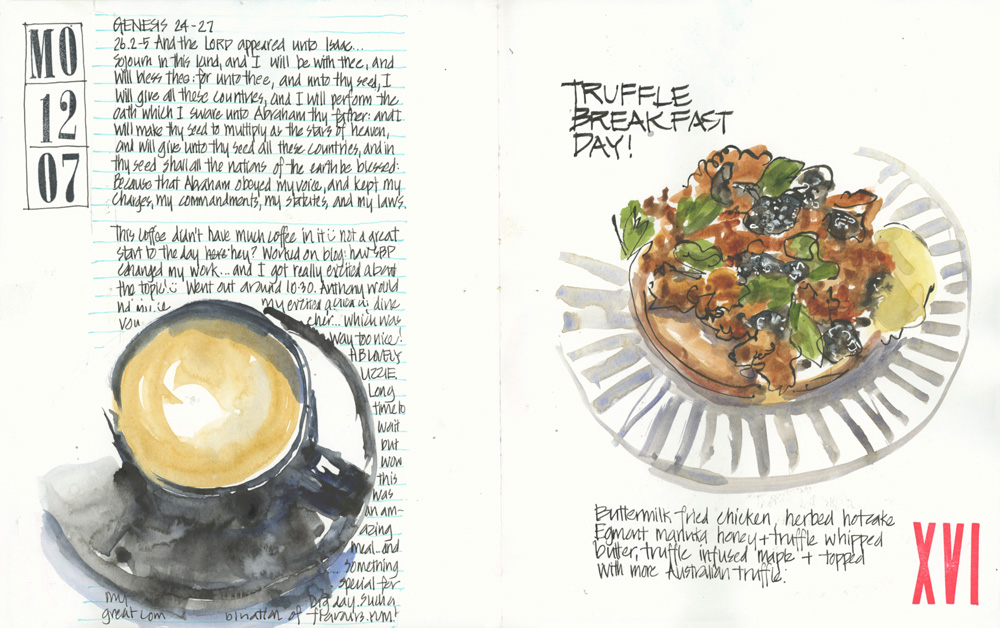 MO
12
07
GENESIS 24-27
26.2-5 And the LORD appeared unto Isaac...
Sojourn in this land, and I will be with thee, and
will bless thee: for unto thee, and unto thy seed, I
will give all these countries, and I will perform the
oath which I sware unto Abraham thy father: and I
will make thy seed to multiply as the stars of heaven,
and will give unto thy seed all these countries, and in
thy seed shall all the nations of the earth be blessed:
Because that Abraham obeyed my voice, and kept my
charges, my commandments, my statutes, and my laws.
This coffee didn't have much coffee in it not a great
start to the day here hey? Worked on blog: how SBP
changed my work... and I got really excited about
the topic! Went out around 10:30. Anthony would
my
you cher... which was
way too nice!
HB LOVELY
LIZZIE.
Long
time to
wait
but
wow
this
was
an am-
azing
meal-and
something
special for
my big day. Such a
great com bination of flavours. Yum!
TRUFFLE
BREAKFAST
DAY!
Buttermilk fried chicken, herbed hotcake
Egmont manuka honey + truffle whipped
butter, truffle infused maple + topped
with more Australian truffle.
XVI